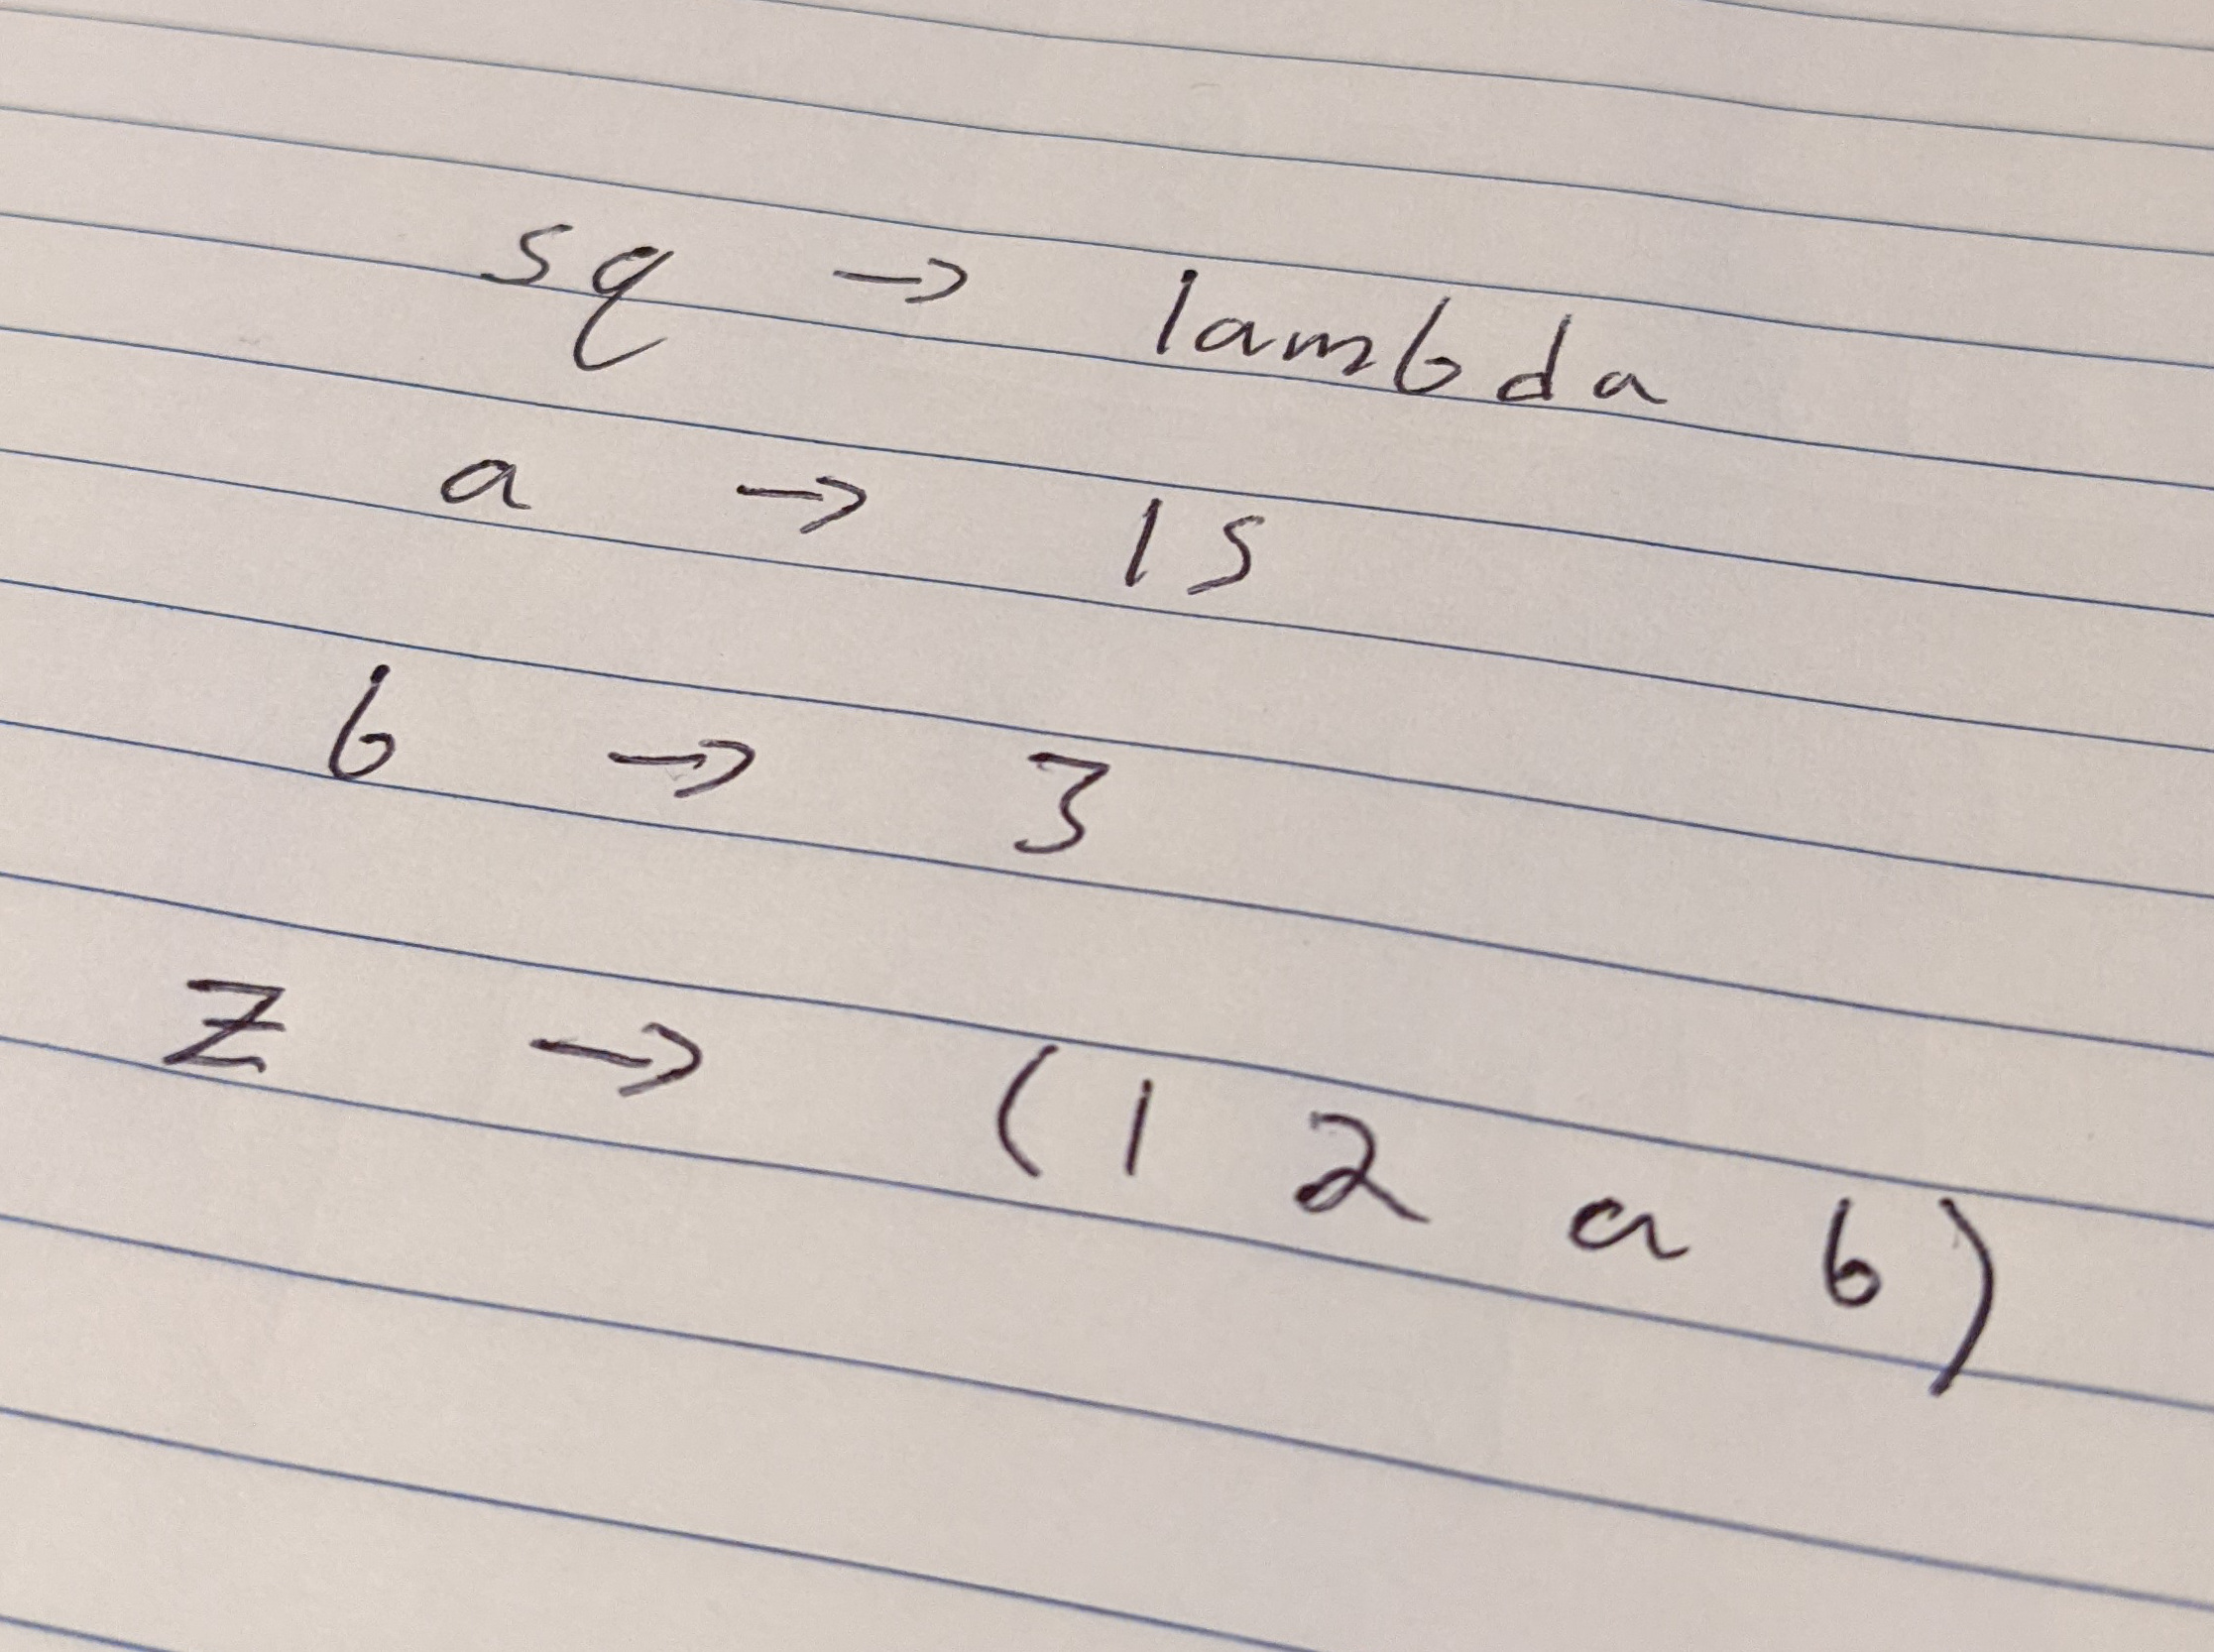 sq → lambda
a → 15
b → 3
z → (1 2 a b)